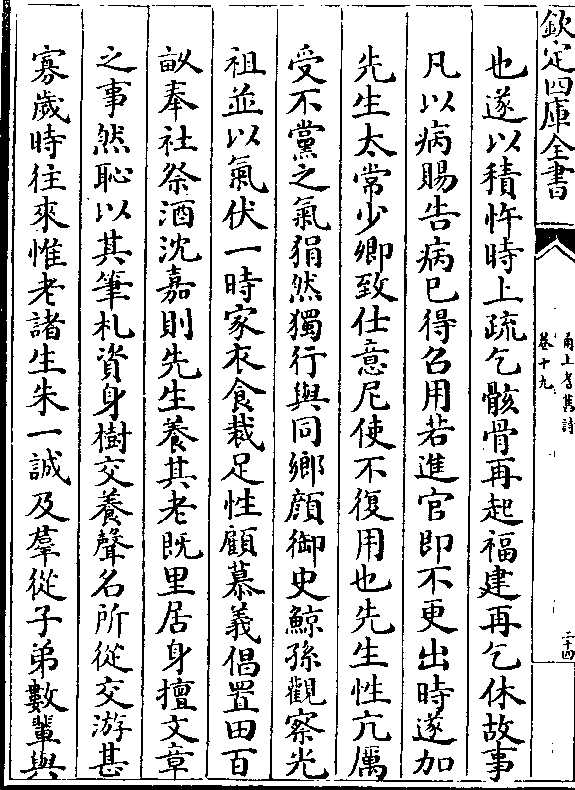 欽定四庫全書
甬上耆舊詩
卷十九
二十四
也遂以積忤時上疏乞骸骨再起福建再乞休故事
凡以病賜告病已得召用若進官即不更出時遂加
先生太常少卿致仕意尼使不復用也先生性亢厲
受不黨之氣狷然獨行與同鄉顔御史鯨孫觀察光
祖並以氣伏一時家衣食裁足性顧慕義倡置田百
畝奉社祭酒沈嘉則先生養其老既里居身擅文章
之事然恥以其筆札資身樹交養聲名所從交游甚
寡歲時往來惟老諸生朱一誠及羣從子弟數輩與